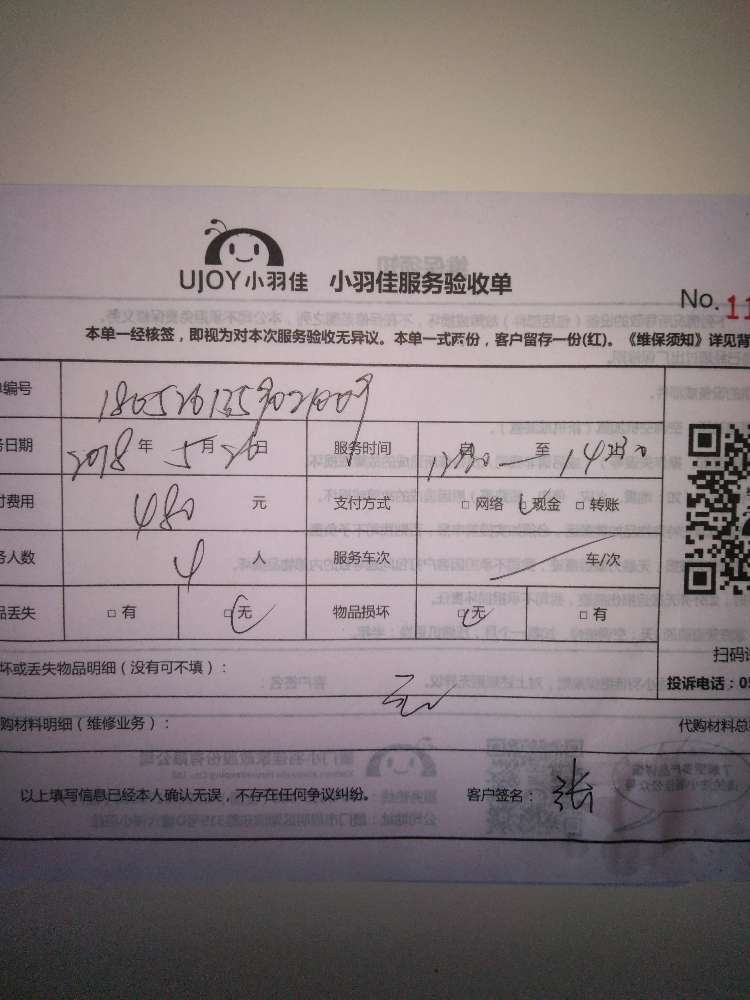 UJOY小羽佳 小羽佳服务验收单
No. 11
本单一经核签，即视为对本次服务验收无异议。本单一式两份，客户留存一份(红)。《维保须知》详见背
编号
日期 2018 年 5 月 26 日 服务时间 至
费用 480 元 支付方式 □ 网络 □ 现金 □ 转账
人数 4 人 服务车次 车/次
品丢失 □ 有 □ 无 物品损坏 □ 无 □ 有
坏或丢失物品明细（没有可不填）： 无
扫码
投诉电话：05
购材料明细（维修业务）： 代购材料总
以上填写信息已经本人确认无误，不存在任何争议纠纷。 客户签名： 张